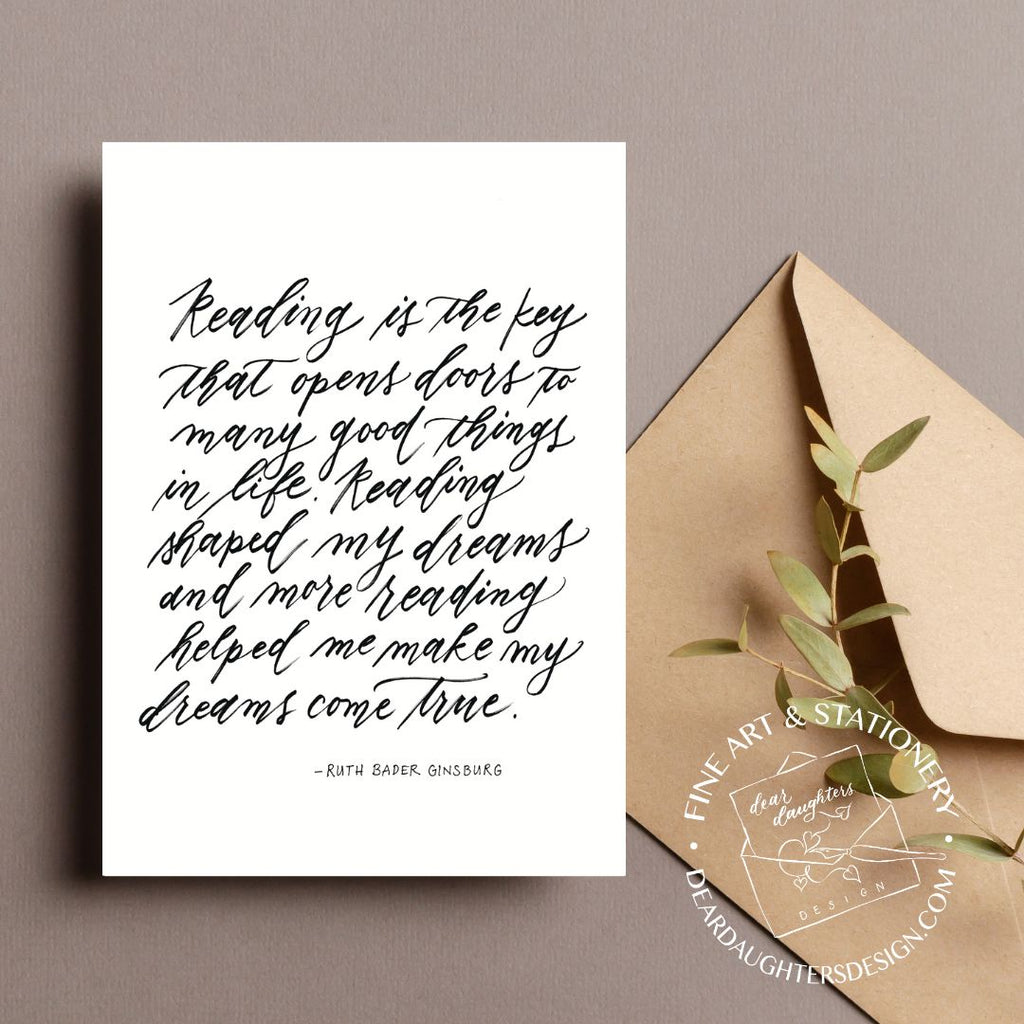 Reading is the key
that opens doors to
many good things
in life. Reading
shaped my dreams
and more reading
helped me make my
dreams come true.
–RUTH BADER GINSBURG
• FINE ART & STATIONERY •
dear
daughters
DESIGN
DEARDAUGHTERSDESIGN.COM